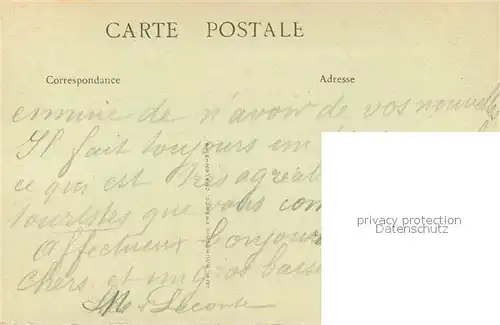 CARTE POSTALE
Correspondance Adresse
ennuie de n'avoir de vos nouvelles
Il fait toujours un
ce qui est très agréab
touristes que vous con
Affectueux bonjours
chers et un gros baise
Lecomte
privacy protection
Datenschutz